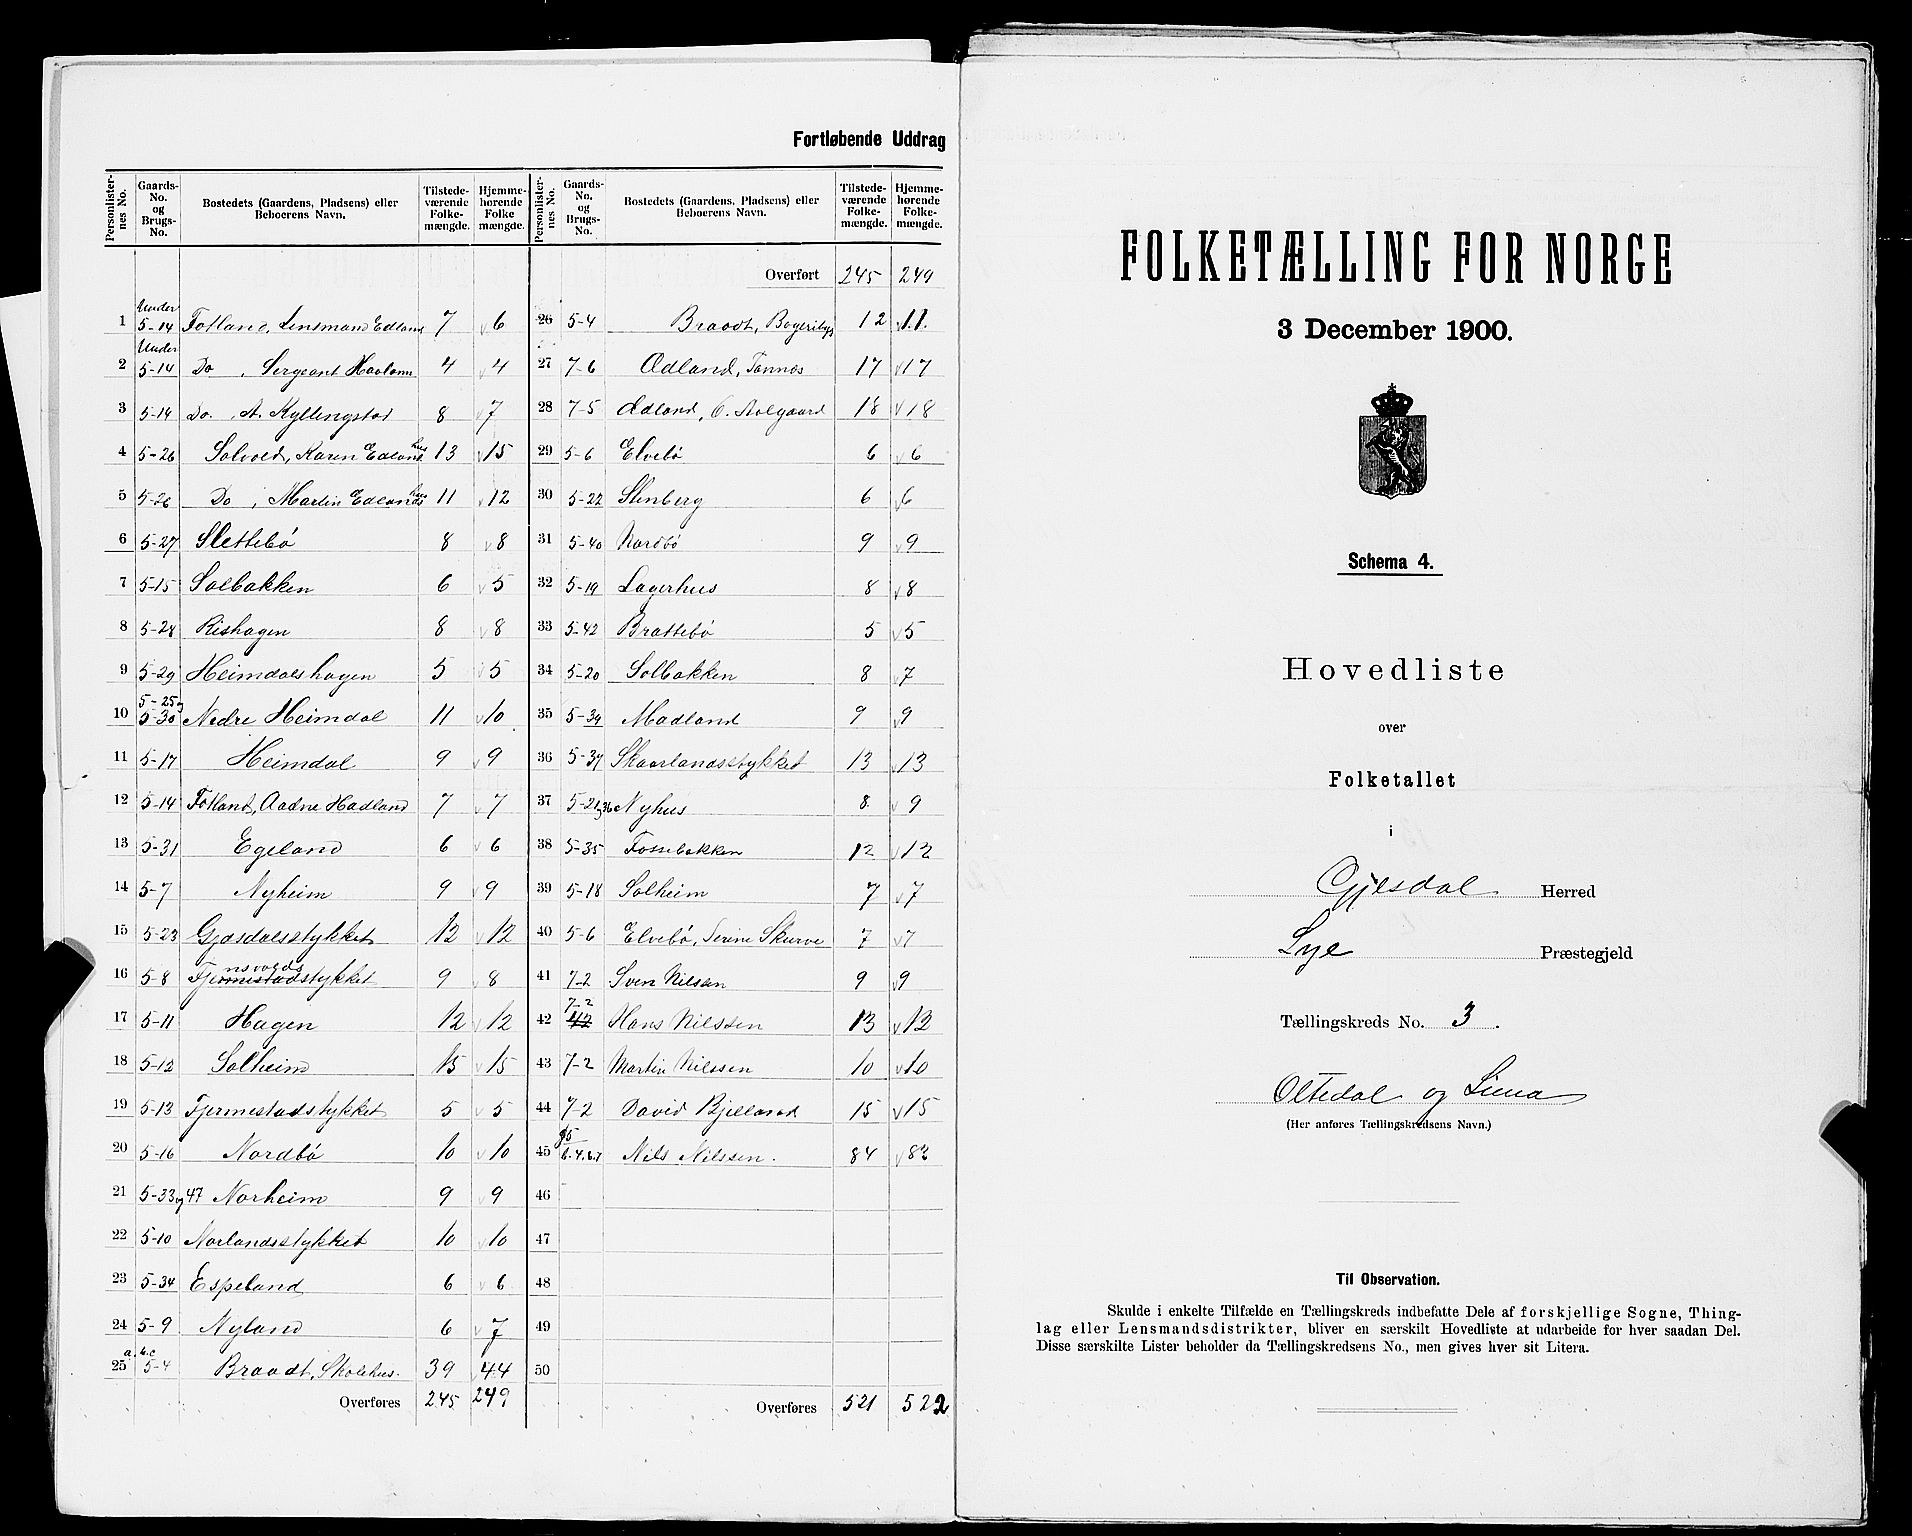 Fortløbende Uddrag
Personlisternes No. | Gaards-No. og Brugs-No. | Bostedets (Gaardens, Pladsens) eller Beboerens Navn. | Tilstedeværende Folkemængde. | Hjemmehørende Folkemængde.
1 | Under 5-14 | Fotland, Lensmand Edland | 7 | v 6
2 | Under 5-14 | Do , Sergeant Havlam | 4 | v 4
3 | 5-14 | Do. , A. Kyllingstad | 8 | v 7
4 | 5-26 | Solvold, Karen Edlands hus | 13 | v 15
5 | 5-26 | Do , Martin Edlands hus | 11 | v 12
6 | 5-27 | Slettebö | 8 | v 8
7 | 5-15 | Solbakken | 6 | v 5
8 | 5-28 | Rishagen | 8 | v 8
9 | 5-29 | Heimdalshagen | 5 | v 5
10 | 5-25 og 5-30 | Nedre Heimdal | 11 | v 10
11 | 5-17 | Heimdal | 9 | v 9
12 | 5-14 | Fotland, Aadne Hadland | 7 | v 7
13 | 5-31 | Egeland | 6 | v 6
14 | 5-7 | Nyheim | 9 | v 9
15 | 5-23 | Gjesdalsstykket | 12 | v 12
16 | 5-8 | Fjermestadstykket | 9 | v 8
17 | 5-11 | Hagen | 12 | v 12
18 | 5-12 | Solheim | 15 | v 15
19 | 5-13 | Fjermestadstykket | 5 | v 5
20 | 5-16 | Nordbö | 10 | v 10
21 | 5-33 og 47 | Norheim | 9 | v 9
22 | 5-10 | Norlandsstykket | 10 | v 10
23 | 5-34 | Espeland | 6 | v 6
24 | 5-9 | Nyland | 6 | v 7
25 | a.b.c 5-4 | Braadt, Skolehus. | 39 | v 44
Overføres | 245 | 249
Personlisternes No. | Gaards-No. og Brugs-No. | Bostedets (Gaardens, Pladsens) eller Beboerens Navn. | Tilstedeværende Folkemængde. | Hjemmehørende Folkemængde.
Overført | 245 | 249
26 | 5-4 | Braadt, | 12 | v 11.
27 | 7-6 | Ödland, Tonnes | 17 | v 17
28 | 7-5 | Ödland, O. Aalgaard | 18 | v 18
29 | 5-6 | Elvebö | 6 | v 6
30 | 5-22 | Stenberg | 6 | v 6
31 | 5-40 | Nordbö | 9 | v 9
32 | 5-19 | Lagerhus | 8 | v 8
33 | 5-42 | Brattebö | 5 | v 5
34 | 5-20 | Solbakken | 8 | v 7
35 | 5-39 | Madland | 9 | v 9
36 | 5-37 | Skaarlandsstykket | 13 | v 13
37 | 5-21 og 36 | Nyhus | 8 | v 9
38 | 5-35 | Fossebakken | 12 | v 12
39 | 5-18 | Solheim | 7 | v 7
40 | 5-6 | Elvebö, Serine Skurve | 7 | v 7
41 | 7-2 | Sven Nilsen | 9 | v 9
42 | 7-2 | Hans Nilssen | 13 | v 13
43 | 7-2 | Martin Nilssen | 10 | v 10
44 | 7-2 | David Bjelland | 15 | v 15
45 | 6.4.6.7 | Nils Nilssen. | 84 | v 83
46
47
48
49
50
Overføres | 521 | 522
FOLKETÆLLING FOR NORGE
3 December 1900.
Schema 4.
Hovedliste
over
Folketallet
i
Gjesdal Herred
Lye Præstegjeld
Tællingskreds No. 3.
Oltedal og Lima
(Her anføres Tællingskredsens Navn.)
Til Observation.
Skulde i enkelte Tilfælde en Tællingskreds indbefatte Dele af forskjellige Sogne, Thing-
lag eller Lensmandsdistrikter, bliver en særskilt Hovedliste at udarbeide for hver saadan Del.
Disse særskilte Lister beholder da Tællingskredsens No., men gives hver sit Litera.